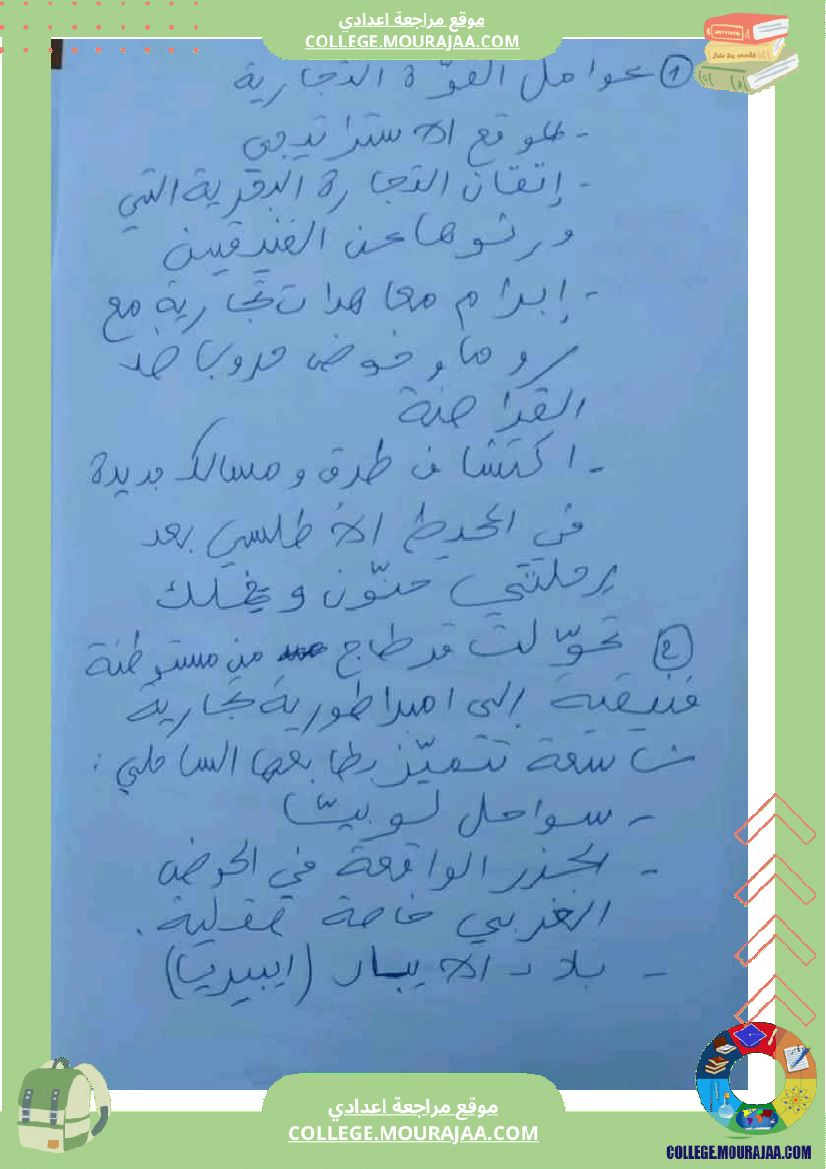 موقع مراجعة اعدادي
COLLEGE.MOURAJAA.COM
① عوامل القوّة التجارية
- الموقع الاستراتيجي
- إتقان التجارة البحرية التي
ورثوها عن الفنيقيين
- إبرام معاهدات تجارية مع
روما وخوض حروبا ضد
القراصنة
- اكتشاف طرق و مسالك جديدة
في المحيط الأطلسي بعد
رحلتي حنّون و خملك
② تحوّلت قرطاج من مستوطنة
فنيقية إلى امبراطورية تجارية
شاسعة تتميّز بطابعها الساحلي :
- سواحل لوبيّا
- الجزر الواقعة في الحوض
الغربي خاصة صقلية .
- بلاد الايبار (ايبيريا)
موقع مراجعة اعدادي
COLLEGE.MOURAJAA.COM
COLLEGE.MOURAJAA.COM